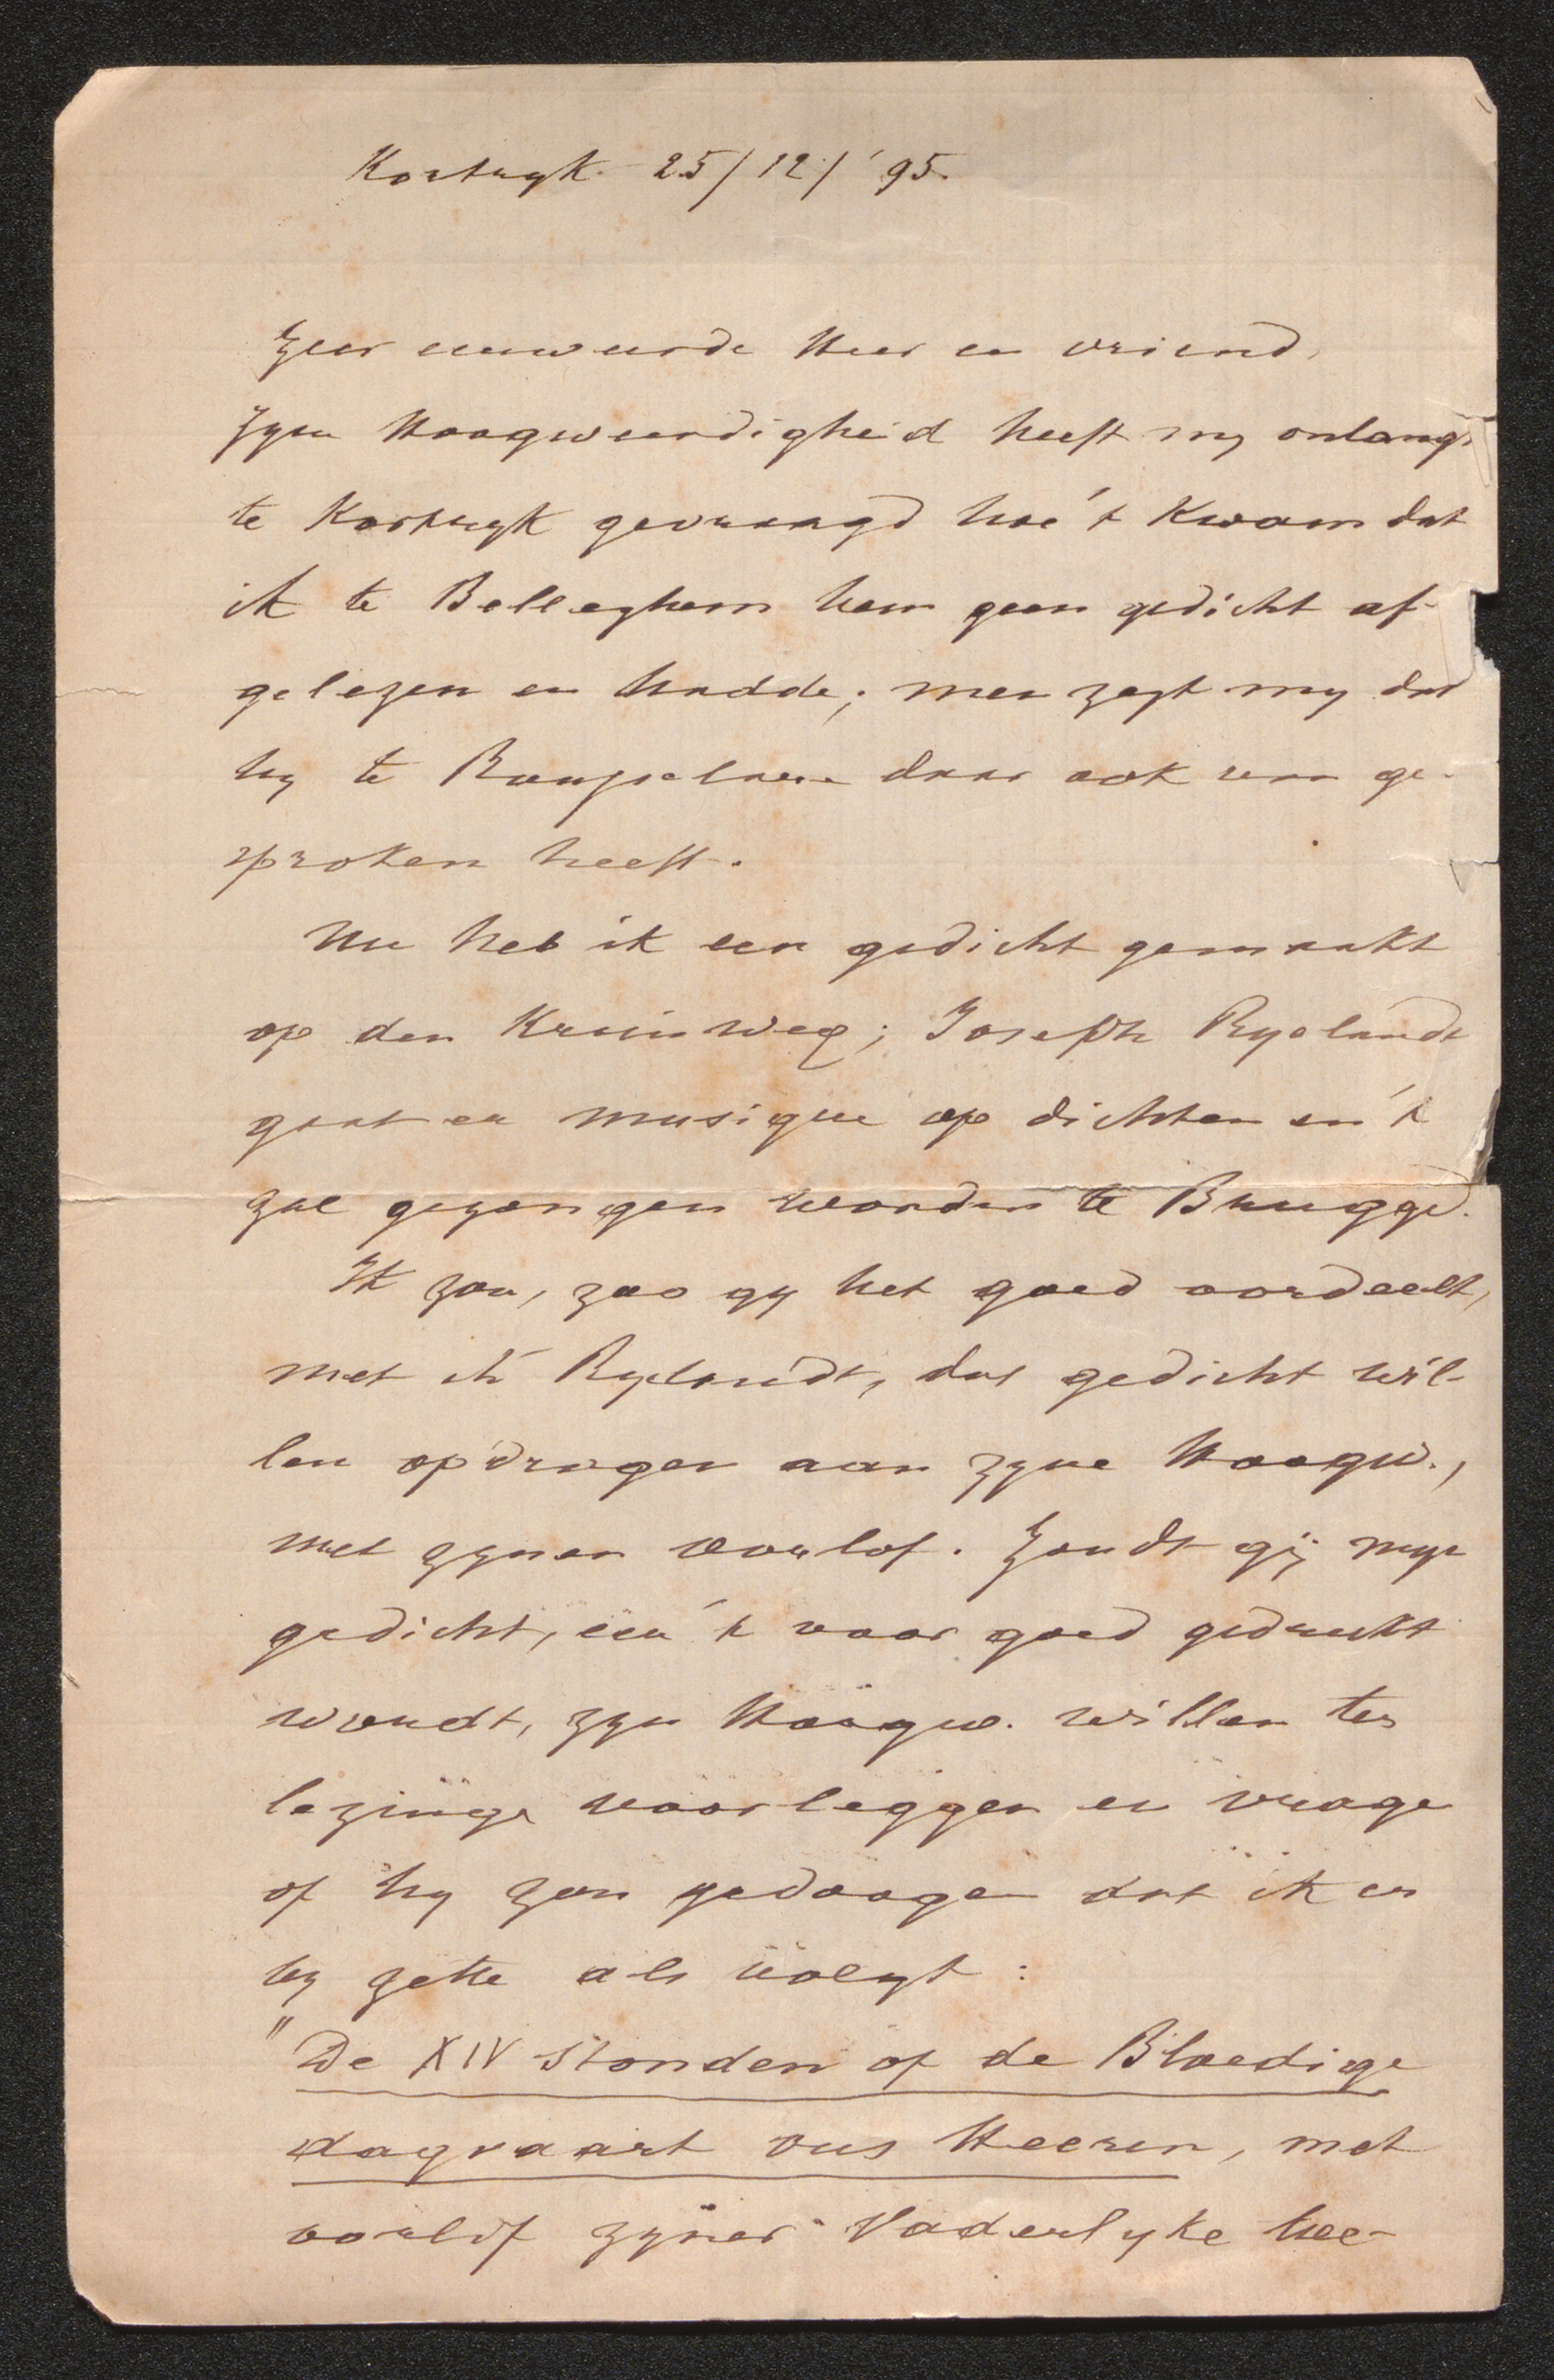 Kortryk 25/12/'95.
Zeer eerweerde Heer en vriend,
Zyn Hoogweerdigheid heeft my onlangs
te Kortryk gevraagd hoe 't kwam dat
ik te Belleghem hem geen gedicht af-
gelezen en hadde; men zegt my dat
hy te Rousselaere daar ook van ge-
sproken heeft.
Nu heb ik een gedicht gemaakt
op den Kruisweg; Joseph Ryelandt
gaat er musique op dichten en 't
zal gezongen worden te Brugge.
Ik zou, zoo gy het goed oordeelt,
met Ryelandt, dat gedicht wil-
len opdragen aan zyne Hoogw.,
met zynen oorlof. Zoudt gij myn
gedicht, eer 't voor goed gedrukt
wordt, zyn Hoogw. willen ter
lezinge voorleggen en vragen
of hy zou gedoogen dat ik er
by zette als volgt:
"De XIV Stonden of de Bloedige
dagvaart ons Heeren, met
oorlof zyner Vaderlyke hee-